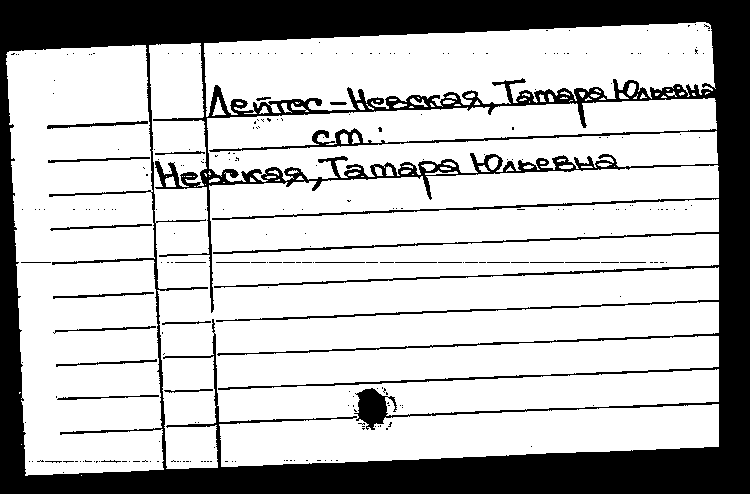 Лейтес-Невская, Тамара Юльевна
ст.:
Невская, Тамара Юльевна